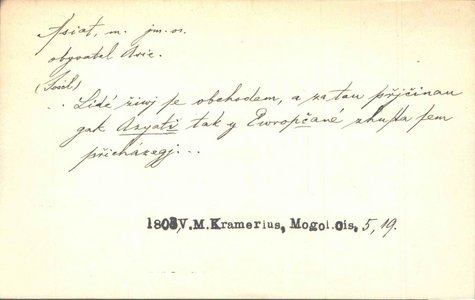 Asiat, m. jm. os.
obyvatel Asie.
(Sosil)
.. Lidé žiwj se obchodem, a za tau přjčinau
gak Azyati tak y Ewropčané zhusta sem
přicházegj...
1803, V.M.Kramerius, Mogol.cís, 5, 19.